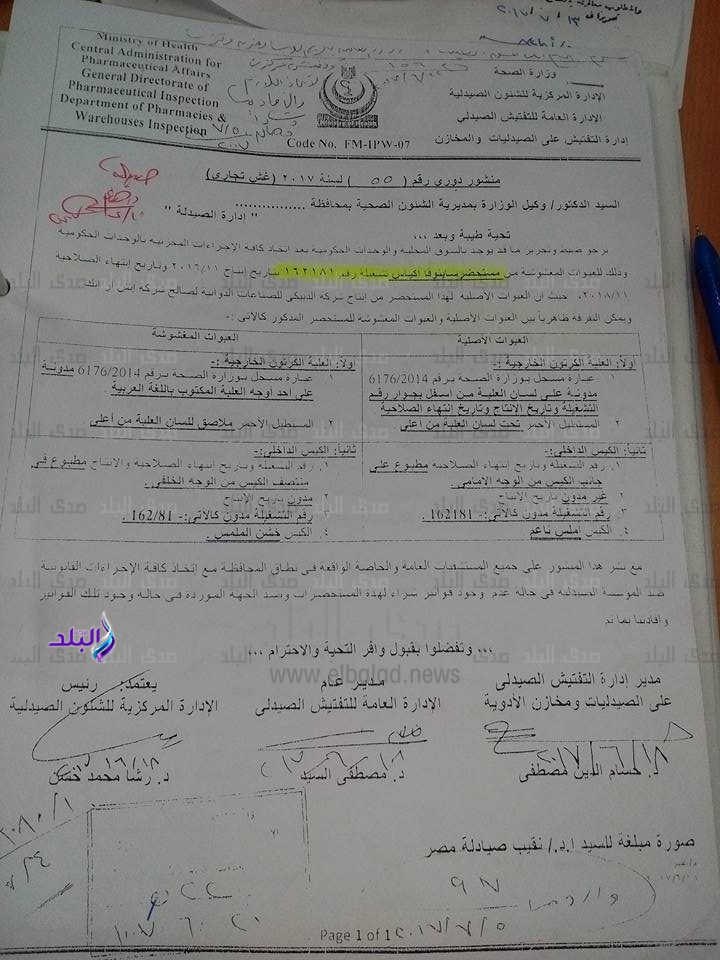 Ministry of Health
Central Administration for
Pharmaceutical Affairs
General Directorate of
Pharmaceutical Inspection
Department of Pharmacies &
Warehouses Inspection
وزارة الصحة
الإدارة المركزية للشئون الصيدلية
الإدارة العامة للتفتيش الصيدلي
إدارة التفتيش على الصيدليات والمخازن
Code No. FM-IPW-07
منشور دورى رقم ( ٥٥ ) لسنة ٢٠١٧ (غش تجارى)
السيد الدكتور/ وكيل الوزارة بمديرية الشئون الصحية بمحافظة ................
" إدارة الصيدلة "
تحية طيبة وبعد ،،،
برجو ضبط وتحريز ما قد يوجد بالسوق المحلية والوحدات الحكومية بعد اتخاذ كافة الإجراءات المخزنية بالوحدات الحكومية
وذلك للعبوات المغشوشة من مستحضر ساينوفا اكياس تشغيلة رقم ١٦٢١٨١ بتاريخ إنتاج ٢٠١٦/١١ وتاريخ إنتهاء الصلاحية
٢٠١٨/١١، حيث ان العبوات الاصلية لهذا المستحضر من إنتاج شركة الدبيكى للصناعات الدوائية لصالح شركة
ويمكن التفرقة ظاهرياً بين العبوات الأصلية والعبوات المغشوشة للمستحضر المذكور كالاتى :-
العبوات الاصلية
العبوات المغشوشة
أولاً: العلبة الكرتون الخارجية :-
١ عبارة مسجل بوزارة الصحة برقم 6176/2014
مدونة على لسان العلبة من أسفل بجوار رقم
التشغيلة وتاريخ الإنتاج وتاريخ انتهاء الصلاحية
٢ المستطيل الأحمر تحت لسان العلبة من أعلى
أولاً: العلبة الكرتون الخارجية :-
١ عبارة مسجل بوزارة الصحة برقم 6176/2014 مدونة
على أحد أوجه العلبة المكتوب باللغة العربية .
٢ المستطيل الأحمر ملاصق للسان العلبة من أعلى
ثانياً: الكيس الداخلى :-
١. رقم التشغيلة وتاريخ إنتهاء الصلاحية مطبوع على
جانب الكيس من الوجه الامامى
٢ غير مدون تاريخ الإنتاج
٣ رقم التشغيلة مدون كالاتى :- 162181 .
٤. الكيس املس ناعم
ثانياً: الكيس الداخلى :-
١. رقم التشغيلة وتاريخ إنتهاء الصلاحية والانتاج مطبوع فى
منتصف الكيس من الوجه الخلفى .
٢ مدون تاريخ الإنتاج
٣ رقم التشغيلة مدون كالاتى :- 162/81 .
٤ الكيس خشن الملمس .
مع نشر هذا المنشور على جميع المستشفيات العامة والخاصة الواقعة فى نطاق المحافظة مع اتخاذ كافة الإجراءات القانونية
ضد المؤسسة الصيدلية فى حالة عدم وجود فواتير شراء لهذة المستحضرات وضد الجهة الموردة فى حالة وجود تلك الفواتير
وإفادتنا بما تم
،،، وتفضلوا بقبول وافر التحية والاحترام ،،،
البلد
صدى البلد
www.elbalad.news
مدير إدارة التفتيش الصيدلى
على الصيدليات ومخازن الأدوية
د. حسام الدين مصطفى
مدير عام
الإدارة العامة للتفتيش الصيدلى
د. مصطفى السيد
يعتمد: رئيس
الإدارة المركزية للشئون الصيدلية
د. رشا محمد حسن
صورة مبلغة للسيد ا.د./ نقيب صيادلة مصر
Page 1 of 1